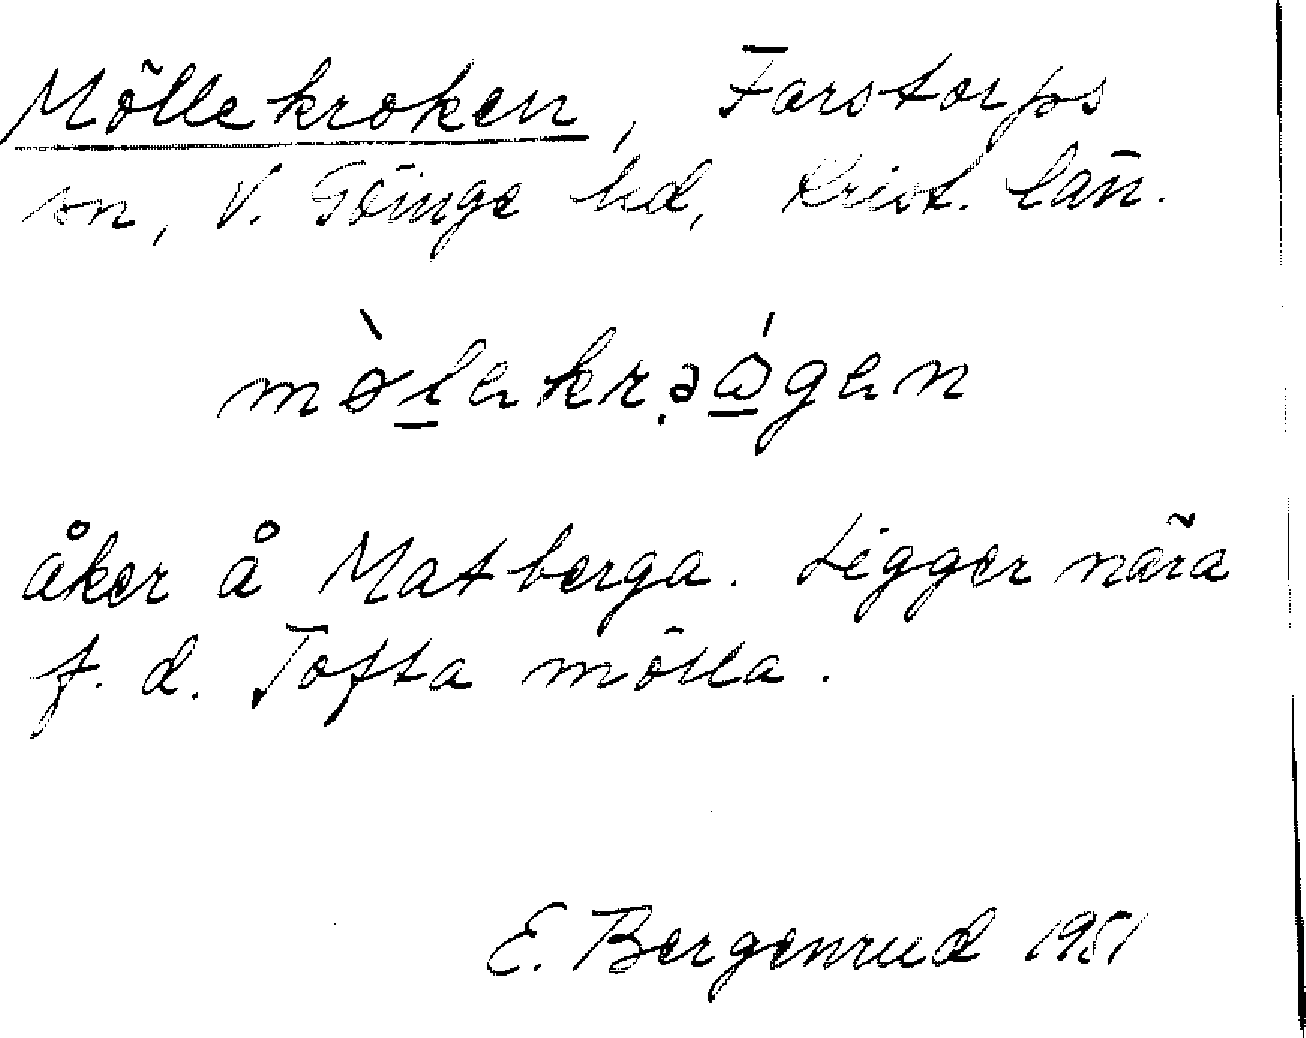 Möllekroken, Farstorps
sn, V. Göinge hd, Krist. län.
mø̀lekr.əǻgen
åker å Matberga. Ligger nära
f. d. Tofta mölla.
E. Bergenrud 1951